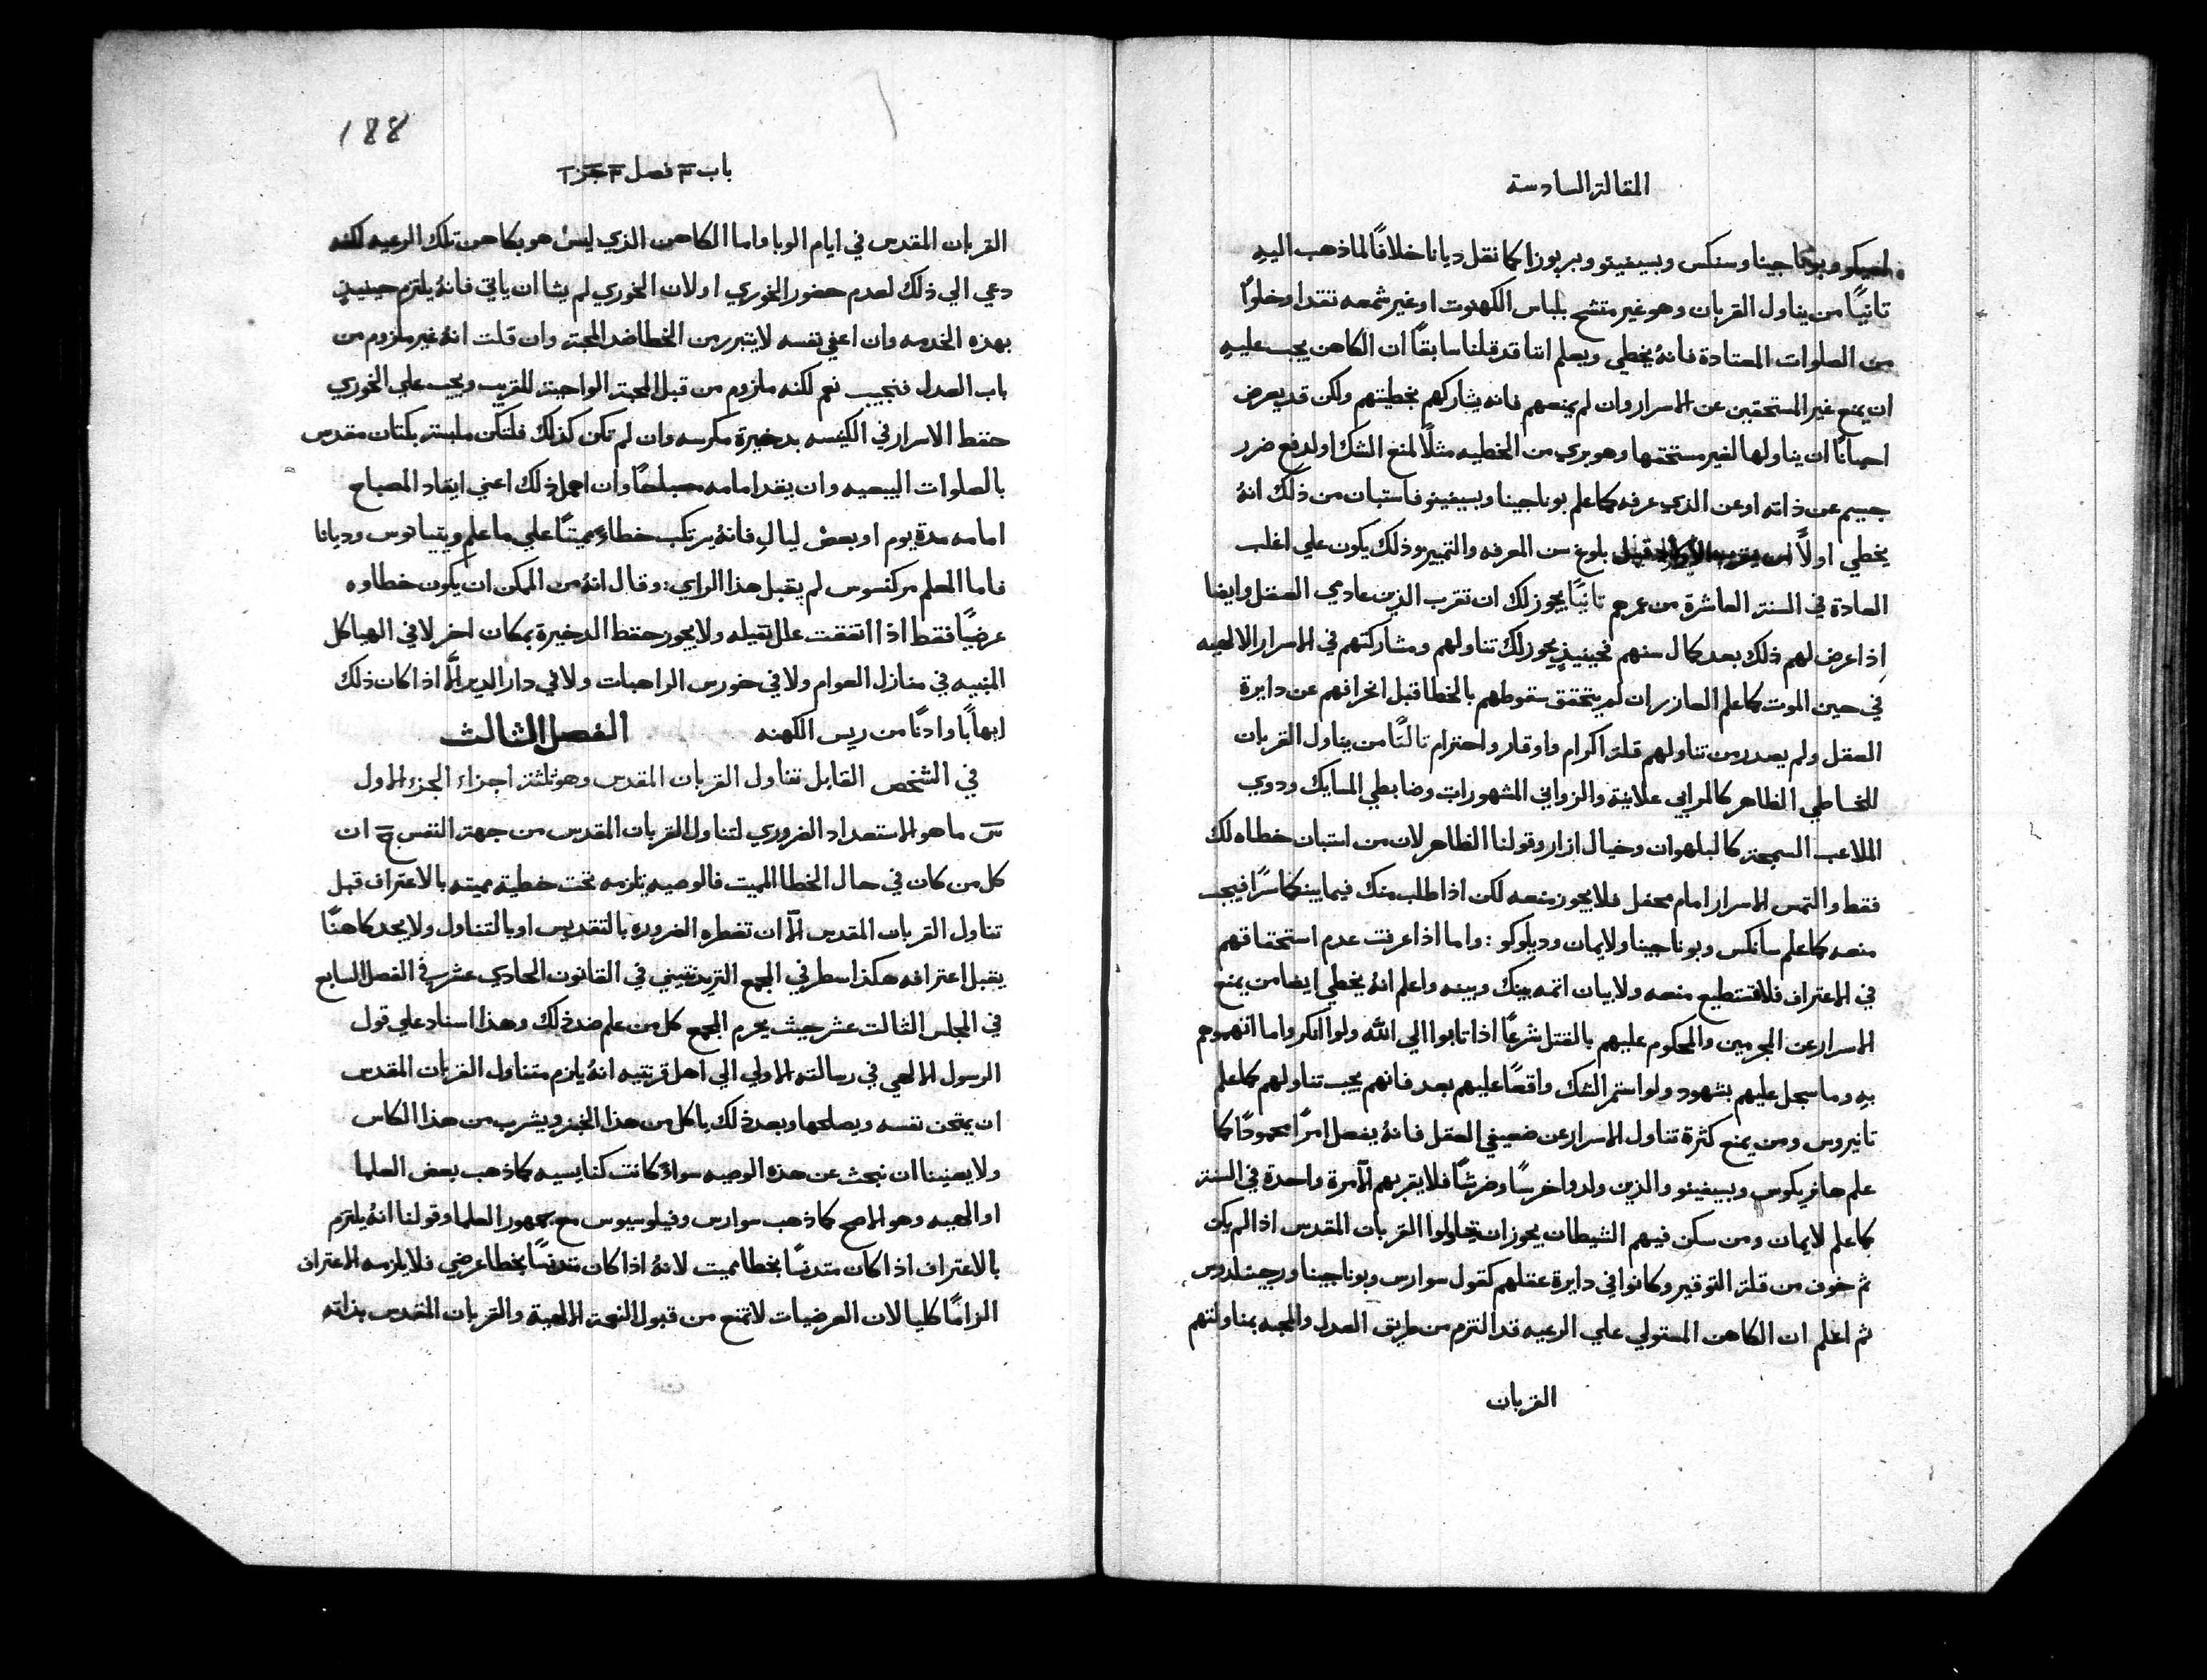 المقالة السادسة
وبوناجينا وسنكس وبسيفينو وبربوزا كما نقل ديانا خلافًا لما ذهب اليهِ
ثانيًا من يناول القربان وهو غير متشح بلباس الكهنوت او غير شمعه تتقد او خلوًا
من الصلوات المعتادة فانهُ يخطي ويعلم اننا قد قلنا سابقًا ان الكاهن يجب عليهِ
ان يمنع غير المستحقين عن الاسرار وان لم يمنعهم فانه يشاركهم بخطيتهم ولكن قد يعرض
احيانًا ان يناولها لغير مستحقها وهو بري من الخطيه مثلًا لمنع الشك او لدفع ضرر
جسيم عن ذاته او عن الذي عرفه كما علم بوناجينا وبسيفينو فاستبان من ذلك انهُ
يخطي اولًا من يقرب الاطفال قبل بلوغ سن المعرفه والتمييز وذلك يكون علي اغلب
العادة في السنة العاشرة من عمرهم ثانيًا يجوز لك ان تقرب الذين عادمي العقل وايضا
اِذا عرض لهم ذلك بعد كمال سنهم فحينيذٍ يجوز لك تناولهم ومشاركتهم في الاسرار الالهيه
في حين الموت كما علم العازر ان لم يتحقق سقوطهم بالخطا قبل انحرافهم عن دايرة
العقل ولم يصدر من تناولهم قلة اكرام واوقار واحترام ثالثًا من يناول القربان
للخاطي الظاهر كالمرابي علانية والزواني المشهورات وضابطي المسايك وذوي
الملاعب السمجة كالبلهوان وخيال ازار وقولنا الظاهر لان من استبان خطاه لك
فقط والتمس الاسرار امام محفل فلا يجوز منعه لكن اذا طلب منك فيما بينكما سرًا فيجب
منعه كما علم سانكس وبوناجينا ولايمان وديلوكو: واما اذا عرفت عدم استحقاقهم
في الاعتراف فلا تستطيع منعه ولا بيان اثمه بينك وبينه واعلم انهُ يخطي ايضا من يمنع
الاسرار عن المجرمين والمحكوم عليهم بالقتل شرعًا اذا تابوا الي الله ولو انكروا ما اتهموهم
بهِ وما سجل عليهم بشهود ولو استمر الشك واقعًا عليهم بعد فانهم يجب تناولهم كما علم
تانيروس ومن يمنع كثرة تناول الاسرار عن ضعيفي العقل فانهُ يفعل امرًا محمودًا كما
علم هانريكوس وبسيفينو والذين ولدوا خرسًا وطرشًا فلا يقربهم الَّا مرة واحدة في السنة
كما علم لايمان ومن سكن فيهم الشيطان يجوز ان يناولوا القربان المقدس اذا لم يكن
ثم خوف من قلة التوقير وكانوا في دايرة عقلهم كقول سوارس وبوناجينا ورجينلدوس
ثم اعلم ان الكاهن المستولي علي الرعيه قد التزم من طريق العدل والمحبه بمناولتهم
القربان
188
باب ٣ فصل ٣ جز ١
القربان المقدس في ايام الوبا واما الكاهن الذي ليس هو بكاهن تلك الرعيه لكنه
دعي الي ذلك لعدم حضور الخوري او لان الخوري لم يشا ان ياتي فانهُ يلتزم حينيذٍ
بهذه الخدمه وان اعفي نفسه لا يتبرر من الخطا ضد المحبة وان قلت انهُ غير ملزوم من
باب العدل فنجيب نعم لكنه ملزوم من قبل المحبة الواجبة للقريب ويجب علي الخوري
حفظ الاسرار في الكنيسه بدخيرة مكرسه وان لم تكن كذلك فلتكن ملبسة بكتان مقدس
بالصلوات البيعيه وان يقد امامه مصباحًا وان اهمل ذلك اعني ايقاد المصباح
امامه مدة يوم او بعض ليالٍ فانهُ يرتكب خطاءً مميتًا علي ما علم ويتياتوس وديانا
فاما المعلم مركنسوس لم يقبل هذا الراي: وقال انهُ من الممكن ان يكون خطاوه
عرضيًا فقط اذا اتفقت علل ثقيله ولا يجوز حفظ الدخيرة بمكان اخر لا في الهياكل
المبنيه في منازل العوام ولا في خورس الراهبات ولا في دار الدير الَّا اذا كان ذلك
ايهابًا واذنًا من ريس الكهنه الفصل الثالث
في الشخص القابل تناول القربان المقدس وهو ثلثة اجزاء الجزء الاول
س ما هو الاستعداد الضروري لتناول القربان المقدس من جهة النفس ج ان
كل من كان في حال الخطا المميت فالوصيه تلزمه تحت خطية مميته بالاعتراف قبل
تناول القربان المقدس الَّا ان تضطره الضروره بالتقديس او بالتناول ولا يجد كاهنًا
يقبل اعترافه هكذا سطر في المجمع التريدنتيني في القانون الحادي عشر في الفصل السابع
في المجلس الثالت عشر حيث يحرم المجمع كل من علم ضد ذلك وهذا اسناد علي قول
الرسول الالهي في رسالته الاولي الي اهل قرنتيه انهُ يلزم متناول القربان المقدس
ان يمتحن نفسه ويصلحها وبعد ذلك ياكل من هذا الخبز ويشرب من هذا الكاس
ولا يعنينا ان نبحث عن هذه الوصيه سواءً كانت كنايسيه كما ذهب بعض العلما
او الهيه وهو الاصح كما ذهب سوارس وفيلوسيوس مع جمهور العلما وقولنا انهُ يلتزم
بالاعتراف اذا كان متدنسًا بخطا مميت لانهُ اذا كان متدنسًا بخطا عرضي فلا يلزمه الاعتراف
الزامًا كليا لان العرضيات لا تمنع من قبول النعمة الالهية والقربان المقدس بذاته